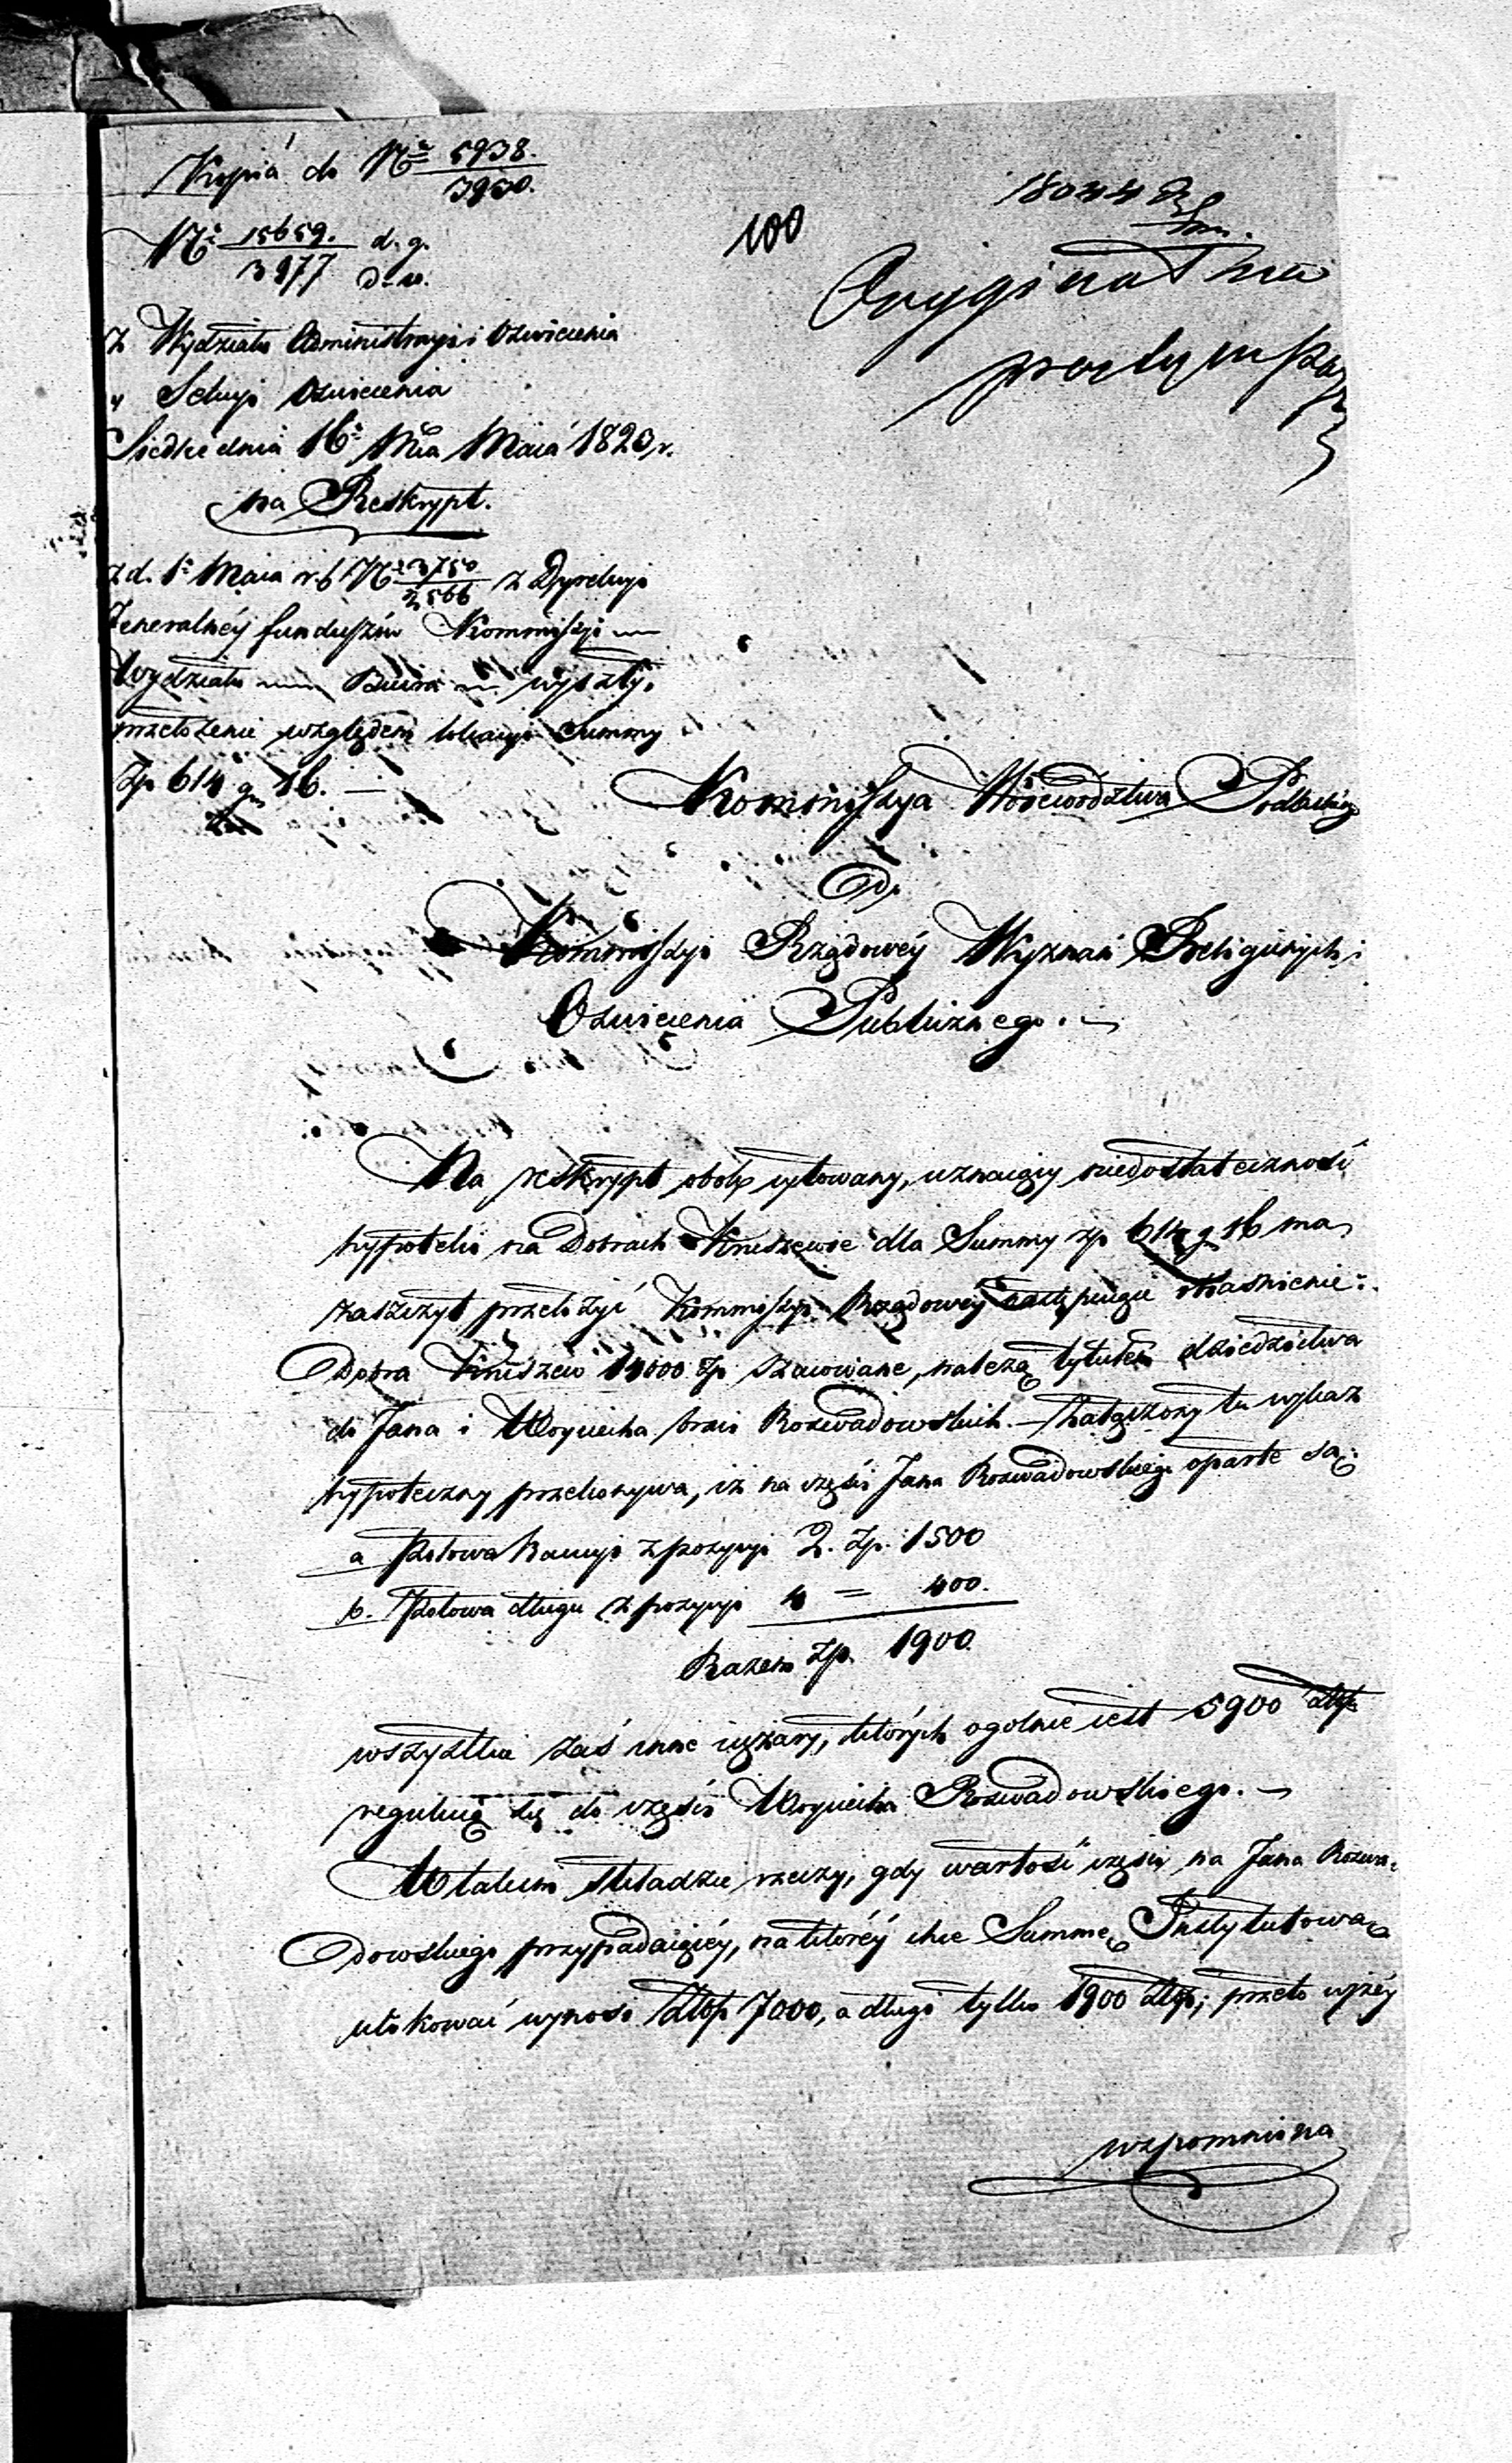 Kopia do Nro 5938./3930.
100
Nro 15659./3977 d. g.
Oryginał
z Wydziału Administracyi i Oświecenia
" Sekcyi Oświecenia
Siedlce dnia 16o Mca Maia 1823 r.
na Reskrypt.
z d. 1o Maia r. b. Nro 3750/2566 z Dyrekcyi
Jeneralnéy funduszów Kommissyi —
Wydziału — Biura — wyszły,
przełożenie względem lokacyi Summy
Zp 614 g. 16. —
Kommissya Woiewodztwa Podlaskiego
Do
Kommissyi Rządowéy Wyznań Religiinych i
Oświecenia Publicznego. —
Na reskrypt obok cytowany, uznaiący niedostateczność
hypoteki na Dobrach Kruszewie dla Summy zp 614 g 16 ma
zaszczyt przełożyć Kommissyi Rządowéy następuiące obiaśnienie:
Dobra Kruszew 14000 Zp szacowane, należą tytułem dziedzictwa
do Jana i Woyciecha braci Rozwadowskich. — Załączony tu wykaz
hypoteczny przekonywa, iż na części Jana Rozwadowskiego oparte są:
a Połowa Kaucyi z pozycyi 2. Zp. 1500
b. Połowa długu z pozycyi 4 = 400.
Razem Zp. 1900.
wszystkie zaś inne ciężary, których ogolnie iest 5900 Złp
reguluią się do części Woyciecha Rozwadowskiego. —
W takim składzie rzeczy, gdy wartość części na Jana Rozwa-
dowskiego przypadaiącéy, na któréy chce Summę Instytutową
ulokować wynosi Złp 7000, a długi tylko 1900 Złp; przeto wyżéy
wspomniona